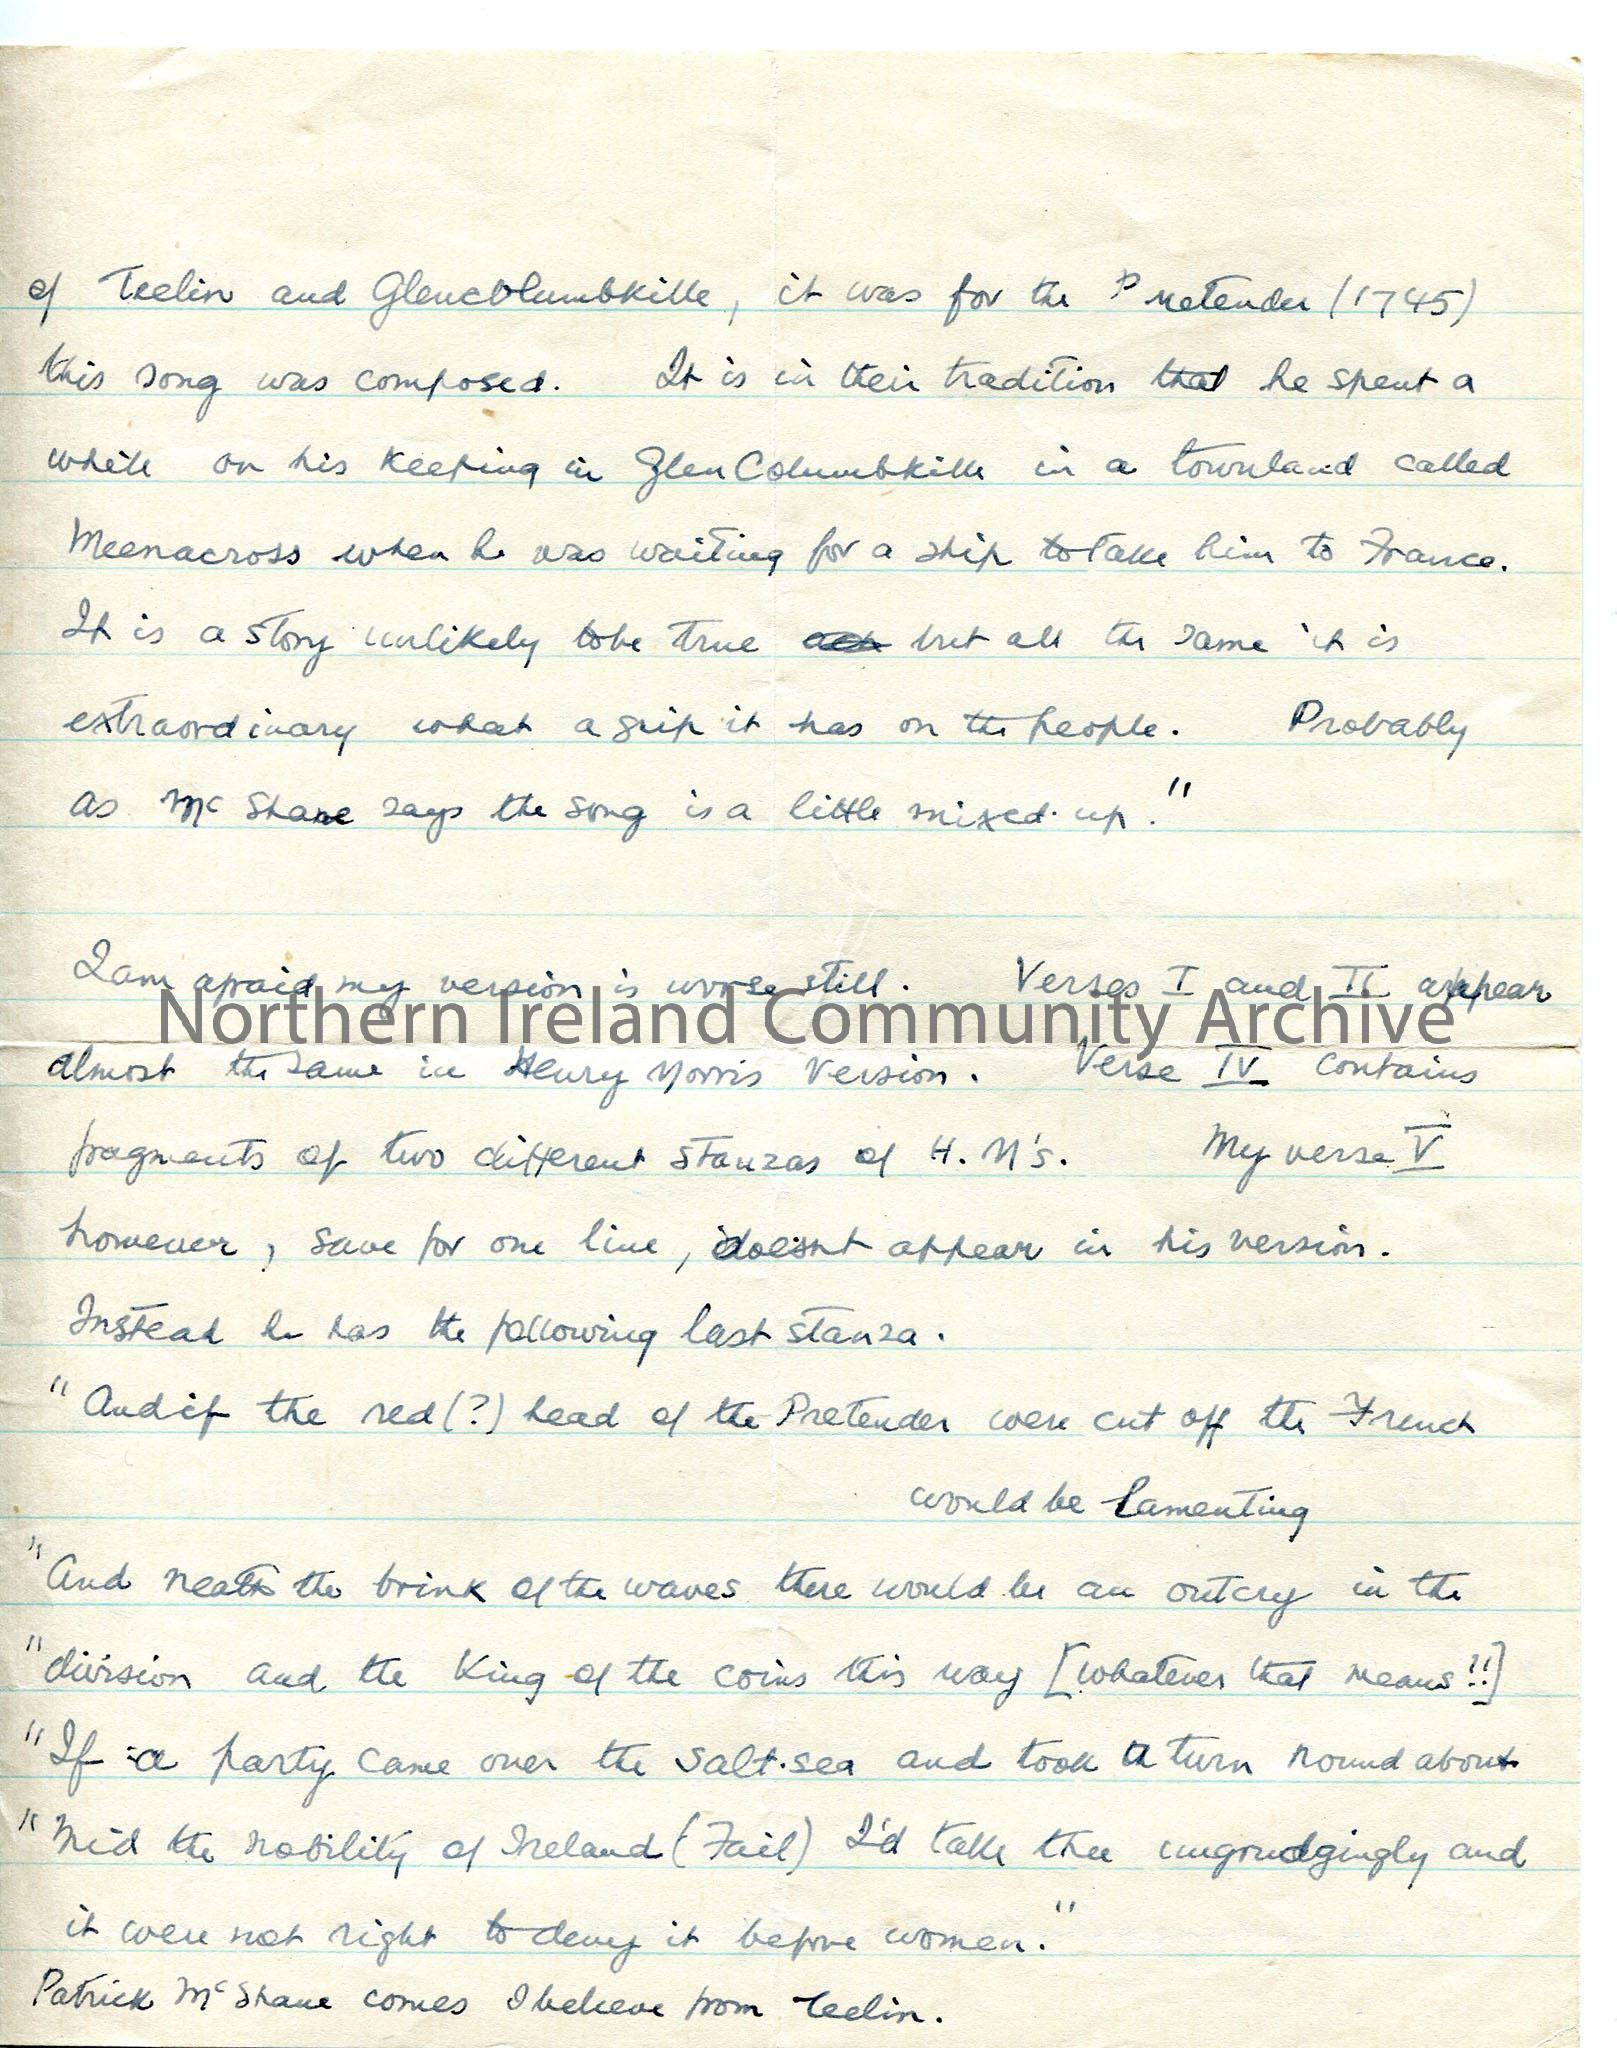 of Teelin and Glencolumbkille, it was for the Pretender (1745)
this song was composed. It is in their tradition that he spent a
while on his keeping in GlenColumbkille in a townland called
Meenacross when he was waiting for a ship to take him to France.
It is a story unlikely to be true but all the same it is
extraordinary what a grip it has on the people. Probably
as McShane says the song is a little mixed-up."
I am afraid my version is worse still. Verses I and II appear
Northern Ireland Community Archive
almost the same in Henry Morris version. Verse IV contains
fragments of two different stanzas of H. M's. My verse V
however, save for one line, doesnt appear in his version.
Instead he has the following last stanza.
"And if the red (?) head of the Pretender were cut off the French
would be lamenting
"And neath the brink of the waves there would be an outcry in the
"division and the King of the coins this way [whatever that means!!]
"If a party came over the salt-sea and took a turn round about
"Mid the nobility of Ireland (Fail) I'd take thee ungrudgingly and
it were not right to deny it before women."
Patrick McShane comes I believe from Teelin.